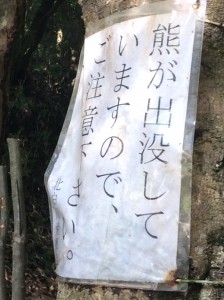 熊が出没して
いますので、
ご注意下さい。